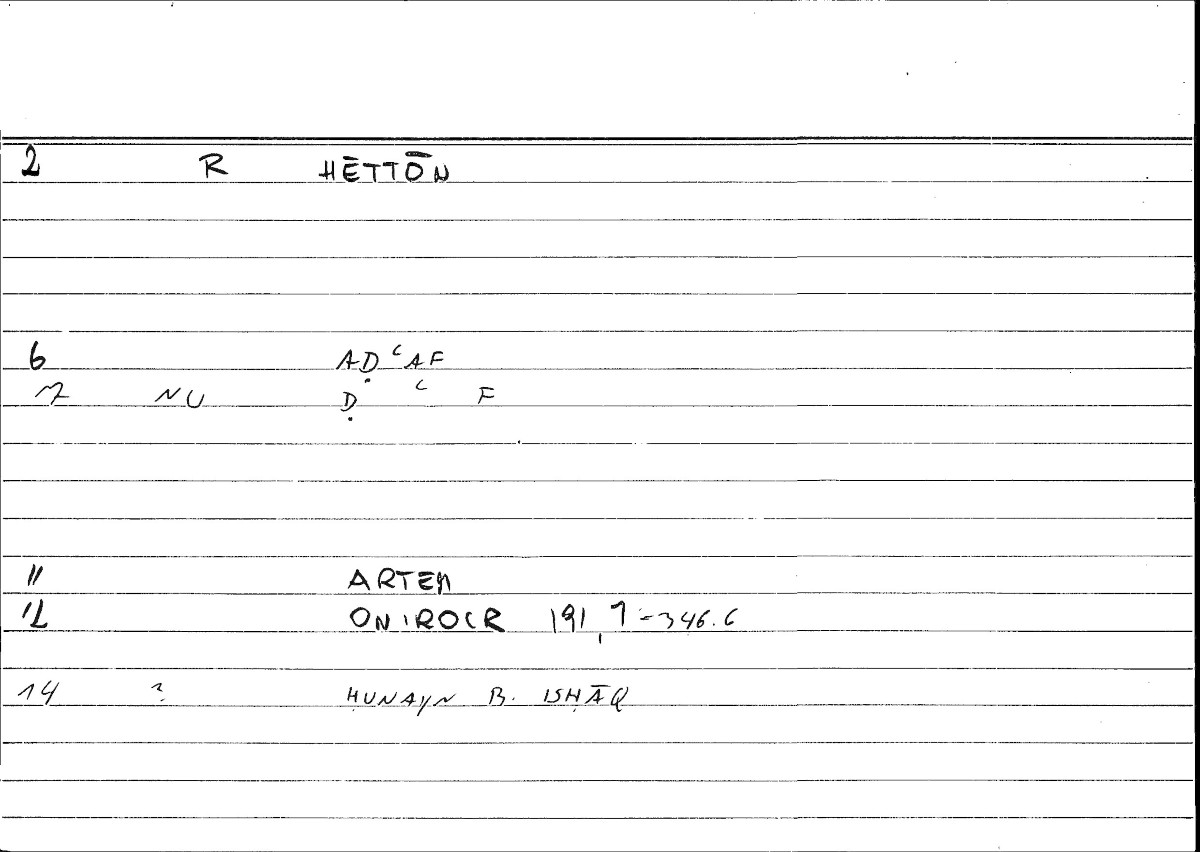 2 R HĒTTŌN
6 AḌʿAF
7 NU Ḍ ʿ F
11 ARTEM
12 ONIROCR 191,7=346.6
14 ? ḤUNAYN B. ISḤĀQ